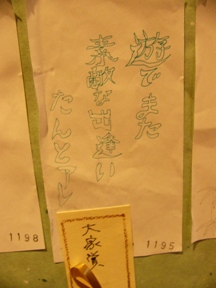 遊でまた
素敵な出逢い
たんとアレ
1198
1195
大家賞